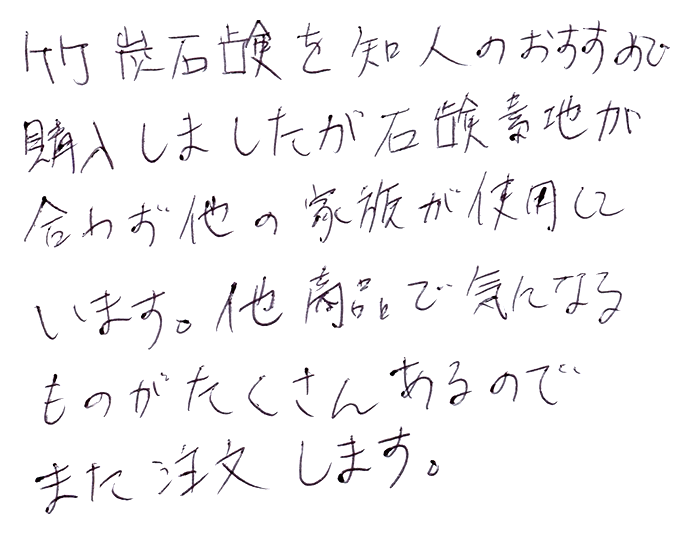 竹炭石鹸を知人のおすすめで
購入しましたが石鹸素地が
合わず他の家族が使用して
います。他商品で気になる
ものがたくさんあるので
また注文します。